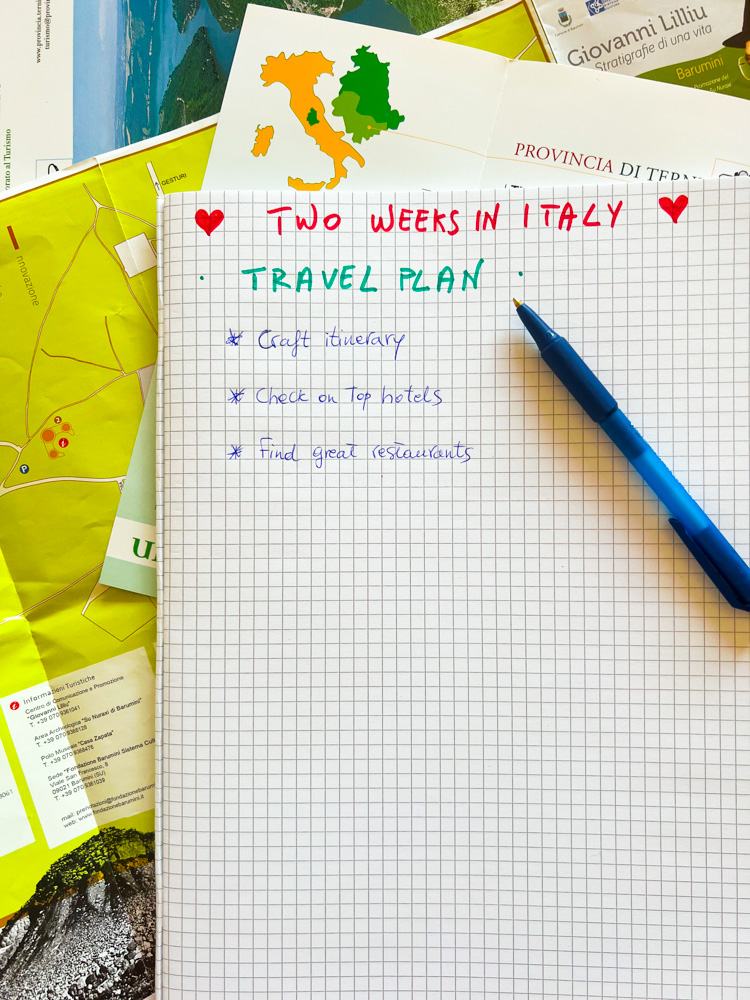 www.provincia.terni
turismo@provin
orato al Turismo
Giovanni Lilliu
Stratigrafie di una vita
Barumini
PROVINCIA DI TERNI
GESTURI
nnovazione
♥ TWO WEEKS IN ITALY ♥
· TRAVEL PLAN ·
* Craft itinerary
* Check on Top hotels
* Find great restaurants
P
i
u
i Informazioni Turistiche
Centro di Comunicazione e Promozione
"Giovanni Lilliu"
T. +39 070 9361041
Area Archeologica "Su Nuraxi di Barumini"
T. +39 070 9368128
Polo Museale "Casa Zapata"
T. +39 070 9368476
Sede "Fondazione Barumini Sistema Cult
Viale San Francesco, 8
09021 Barumini (SU)
T. +39 070 9361039
mail: prenotazioni@fondazionebarum
web: www.fondazionebarumini.it
9061